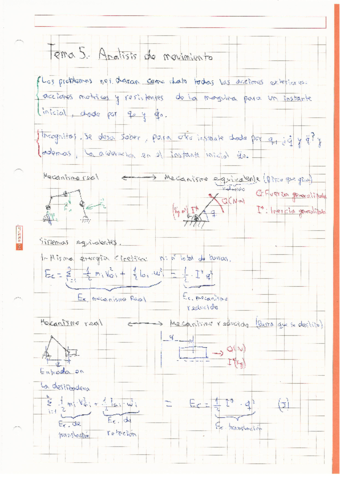 Tema 5. Analisis de movimiento
Los problemas nos daran como dato todas las acciones exteriores
acciones motrices y resistentes de la maquina para un instante
inicial, dado por q₀ y q̇₀.
Incognitas, se desea saber, para otro instante dado por q₁, q̇ y q̈?
y además, la aceleración en el instante inicial q̈₀.
Mecanismo real ⟷ Mecanismo equivalente (Pieza que gira)
reducido
Q (N·m)
Q: Fuerza generalizada
I*: Inercia generalizada
Sistemas equivalentes.
La misma energía cinética n: nº total de barras.
Ec = Σ ½ mᵢ vᵢ² + ½ Iᵢ ωᵢ² = ½ I* q̇²
Ec mecanismo real
Ec mecanismo
reducido
Mecanismo real ⟷ Mecanismo reducido (Pieza que se desliza)
Q (N)
I* (kg)
Entrada en
la deslizadera
Σ ½ mᵢ vᵢ² + ½ Iᵢ ωᵢ² = Ec = ½ I* · q̇² (J)
Ec de
traslación
Ec de
rotación
Ec traslación